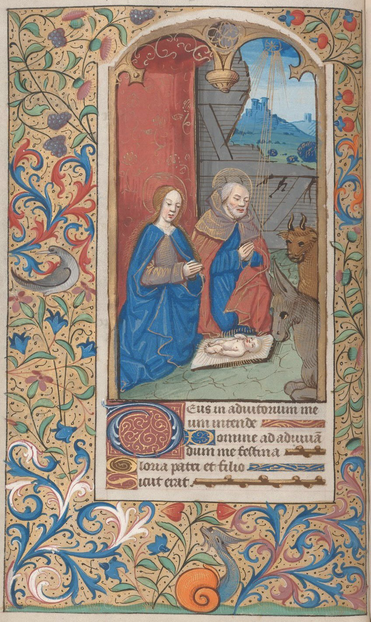 Deus in adiutorium me
um intende
Domine ad adiuuā
dum me festina
Gloria patri et filio
Sicut erat.